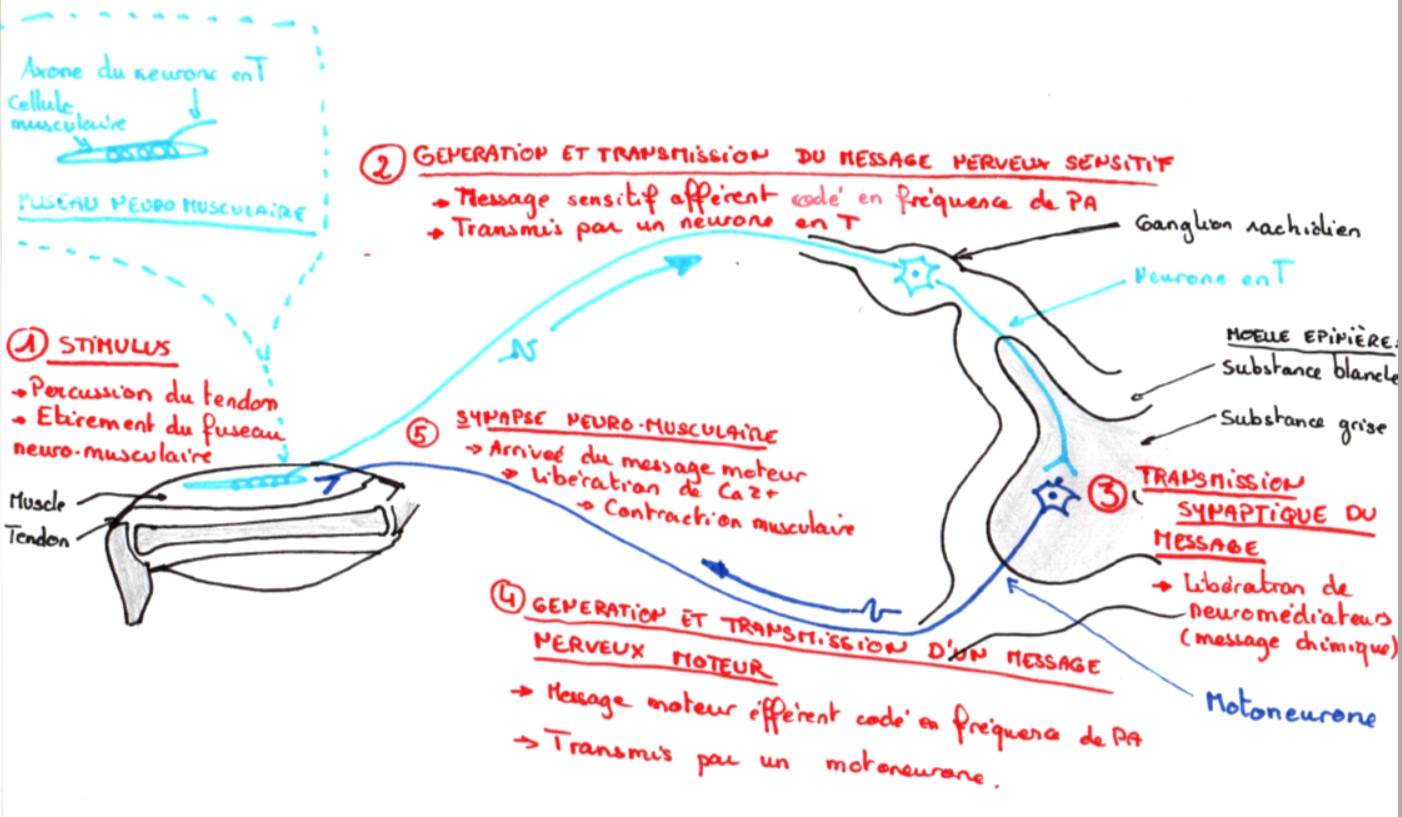 Axone du neurone en T
Cellule
musculaire
FUSEAU NEURO MUSCULAIRE
② GENERATION ET TRANSMISSION DU MESSAGE NERVEUX SENSITIF
→ Message sensitif afférent codé en fréquence de PA
→ Transmis par un neurone en T
Ganglion rachidien
Neurone en T
MOELLE EPINIÈRE:
Substance blanche
Substance grise
① STIMULUS
→ Percussion du tendon
→ Etirement du fuseau
neuro-musculaire
Muscle
Tendon
⑤ SYNAPSE NEURO-MUSCULAIRE
→ Arrivée du message moteur
→ Libération de Ca2+
→ Contraction musculaire
③ TRANSMISSION
SYNAPTIQUE DU
MESSAGE
→ Libération de
neuromédiateurs
(message chimique)
④ GENERATION ET TRANSMISSION D'UN MESSAGE
NERVEUX MOTEUR
→ Message moteur éfférent codé en fréquence de PA
→ Transmis par un motoneurone.
Motoneurone